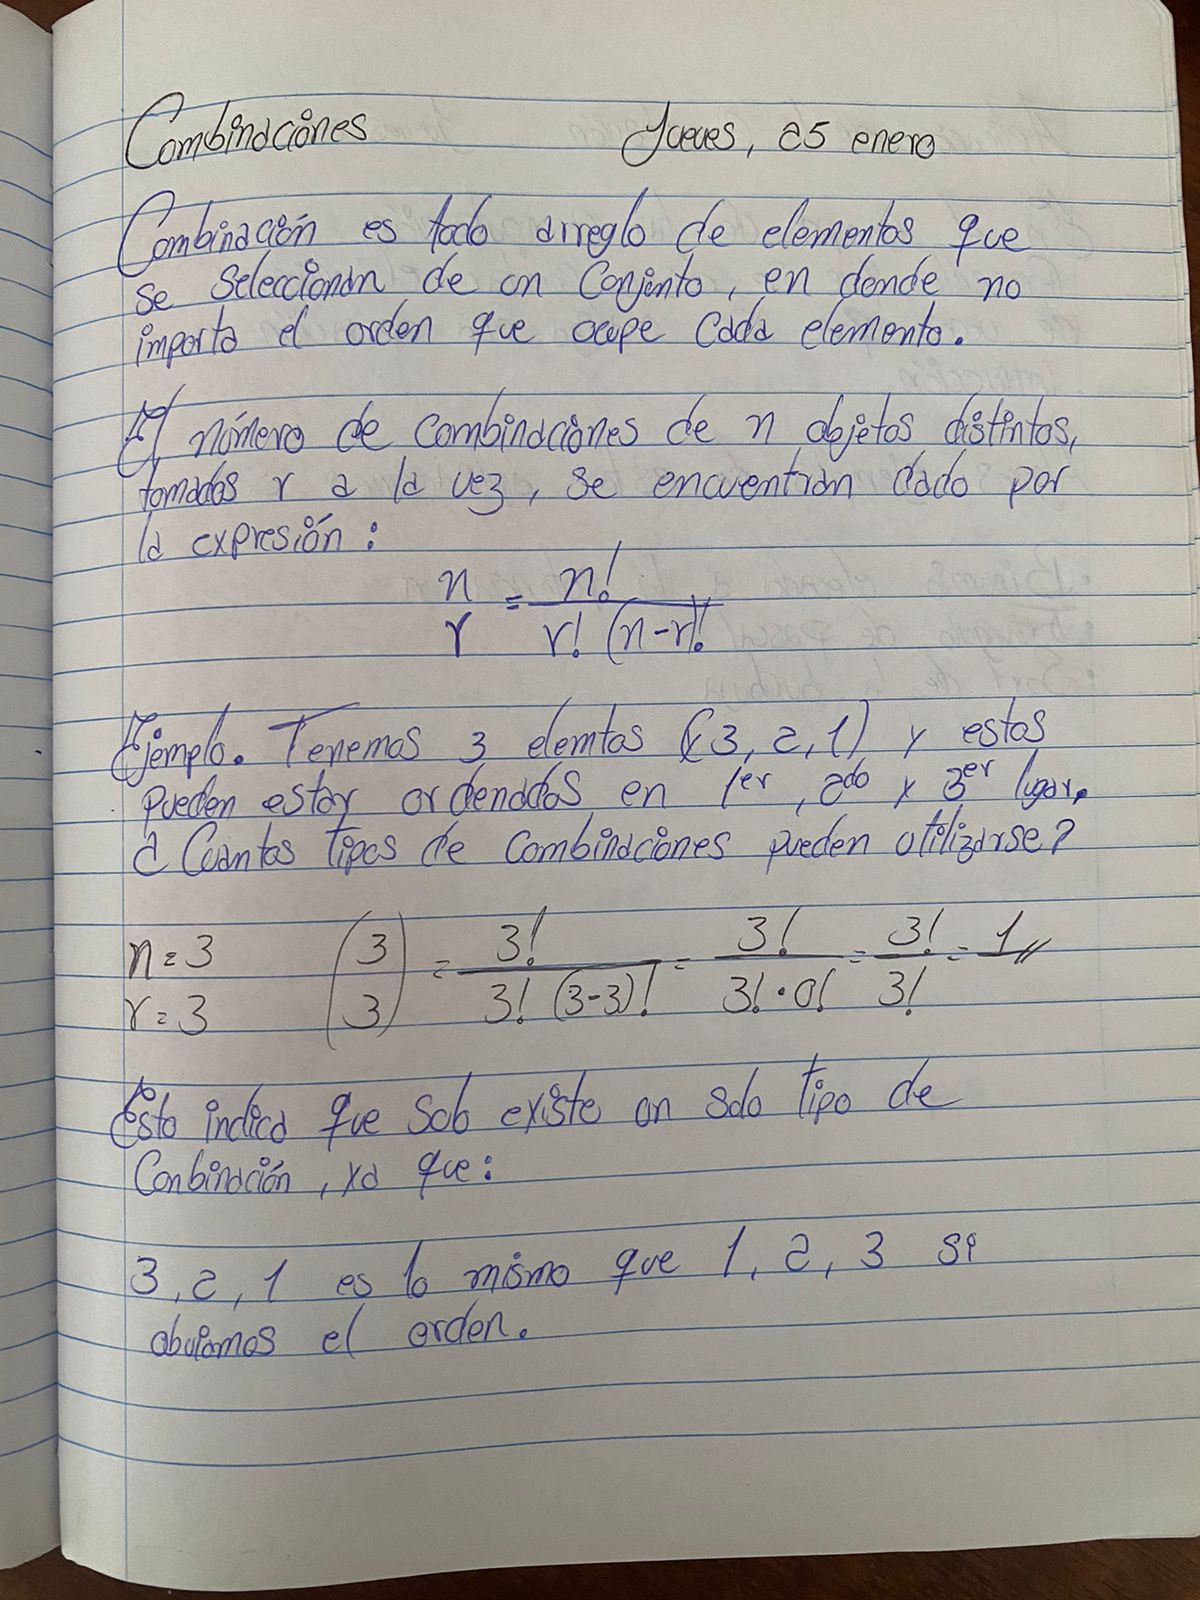 Combinaciones Jueves, 25 enero
Combinación es todo arreglo de elementos que
se seleccionan de un conjunto, en donde no
importa el orden que ocupe cada elemento.
El número de combinaciones de n objetos distintos,
tomados r a la vez, se encuentran dado por
la expresión:
n/r = n!/r! (n-r)!
Ejemplo. Tenemos 3 elemtos (3, 2, 1) y estos
pueden estar ordenados en 1er, 2do y 3er lugar.
¿Cuantos tipos de combinaciones pueden utilizarse?
n = 3
r = 3
(3 3) = 3!/3! (3-3)! = 3!/3! · 0! = 3!/3! = 1//
Esto indica que solo existe un solo tipo de
Conbinación, ya que:
3, 2, 1 es lo mismo que 1, 2, 3 si
obviamos el orden.